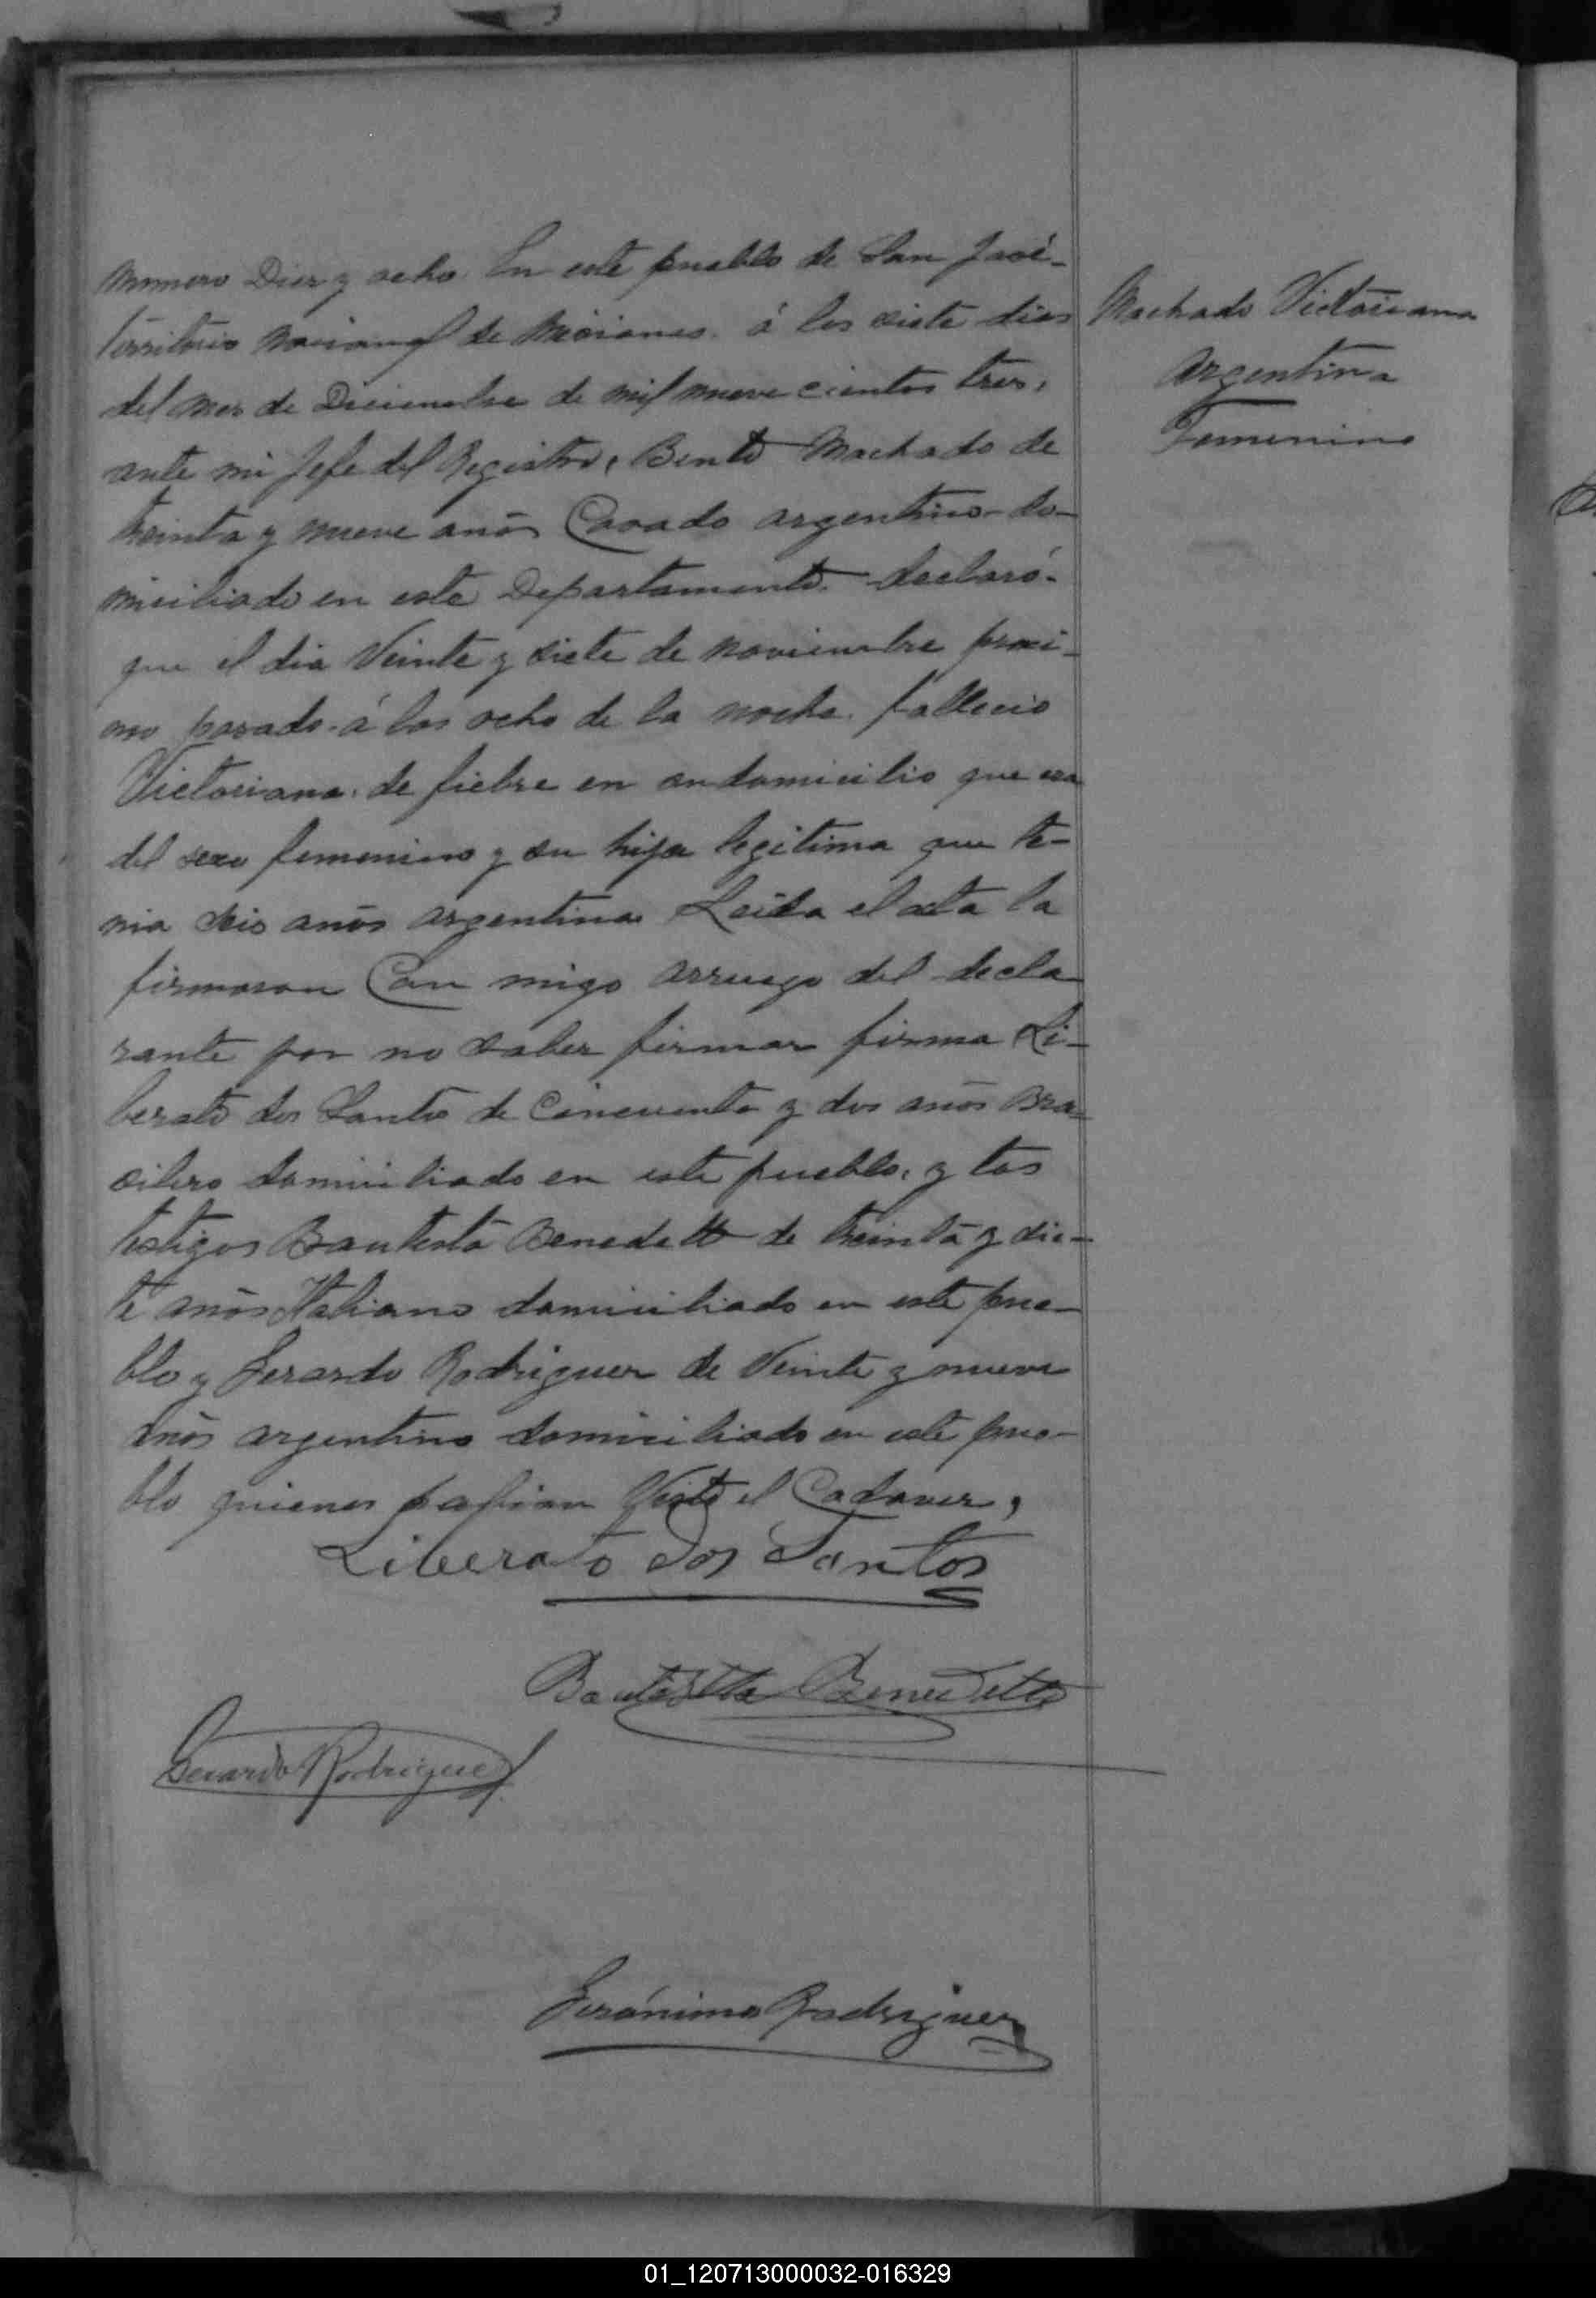 numero Diez y ocho. En este pueblo de San José-
Territorio nacional de Misiones. á los siete dias
del mes de Diciembre de mil nueve cientos tres,
ante mi Jefe del Registro, Bento Machado de
treinta y nueve años Casado argentino-do-
miciliado en este Departamento. declaró-
que el dia Veinte y siete de noviembre proxi-
mo pasado-á las ocho de la noche. fallecio
Victoriana. de fiebre en su domicilio que era
del sexo femenino y su hija legitima que te-
nia seis años argentina. Leida el acta la
firmaron Con migo arruego del decla
rante por no saber firmar firma Li-
berato dos Santos de Cincuenta y dos años Bra-
silero domiciliado en este pueblo, y los
testigos Bautista Benedetto de treinta y sie-
te años Italiano domiciliado en este pue-
blo y Gerardo Rodriguez de Veinte y nueve
años argentino domiciliado en este pue-
blo quienes habian Visto el Cadaver,
Liberato dos Santos
Bautista Benedetto
Gerardo Rodriguez
Gerónimo Rodriguez
Machado Victoriana
Argentina
Femenino
01_120713000032-016329